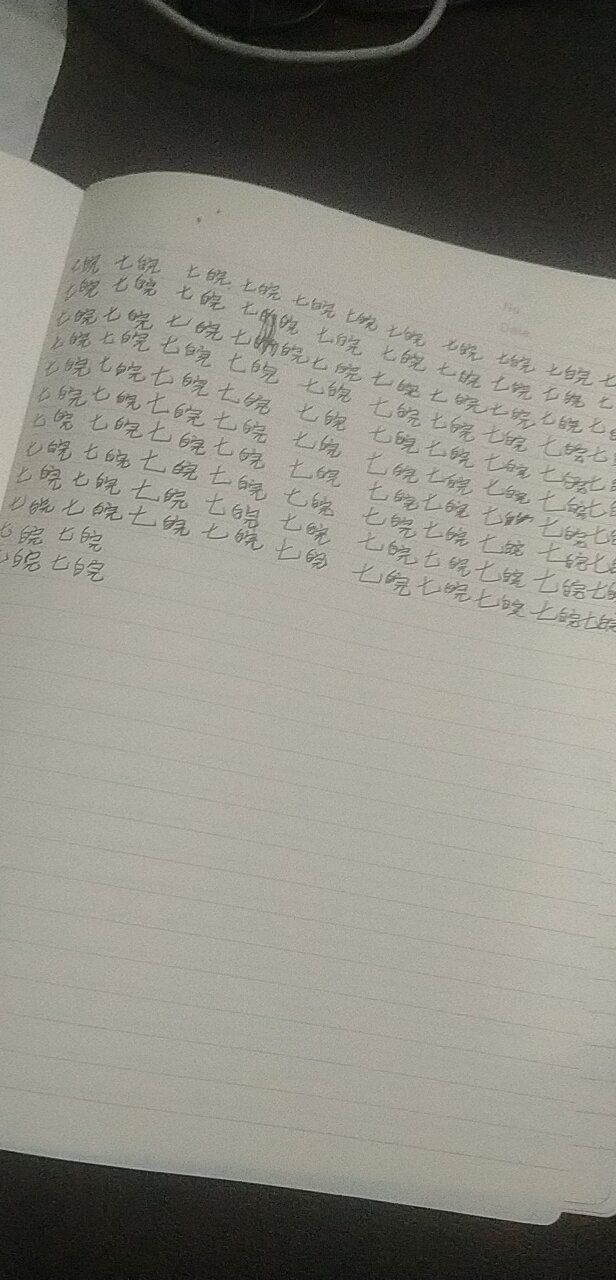 七皖 七皖 七皖 七皖 七皖 七皖 七皖 七皖 七皖 七皖 七
七皖 七皖 七皖 七皖 七皖 七皖 七皖 七皖 七皖 七
七皖 七皖 七皖 七皖 七皖 七皖 七皖 七皖 七皖 七皖 七
七皖 七皖 七皖 七皖 七皖 七皖 七皖 七皖 七皖 七
七皖 七皖 七皖 七皖 七皖 七皖 七皖 七皖 七皖 七
七皖 七皖 七皖 七皖 七皖 七皖 七皖 七皖 七皖 七
七皖 七皖 七皖 七皖 七皖 七皖 七皖 七 七皖 七
七皖 七皖 七皖 七皖 七皖 七皖 七皖 七皖 七皖 七
七皖 七皖 七皖 七皖 七皖 七皖 七皖 七皖 七皖 七
七皖 七皖 七皖 七皖 七皖 七皖 七皖 七皖 七皖 七皖
七皖 七皖
七皖 七皖
No.
Date